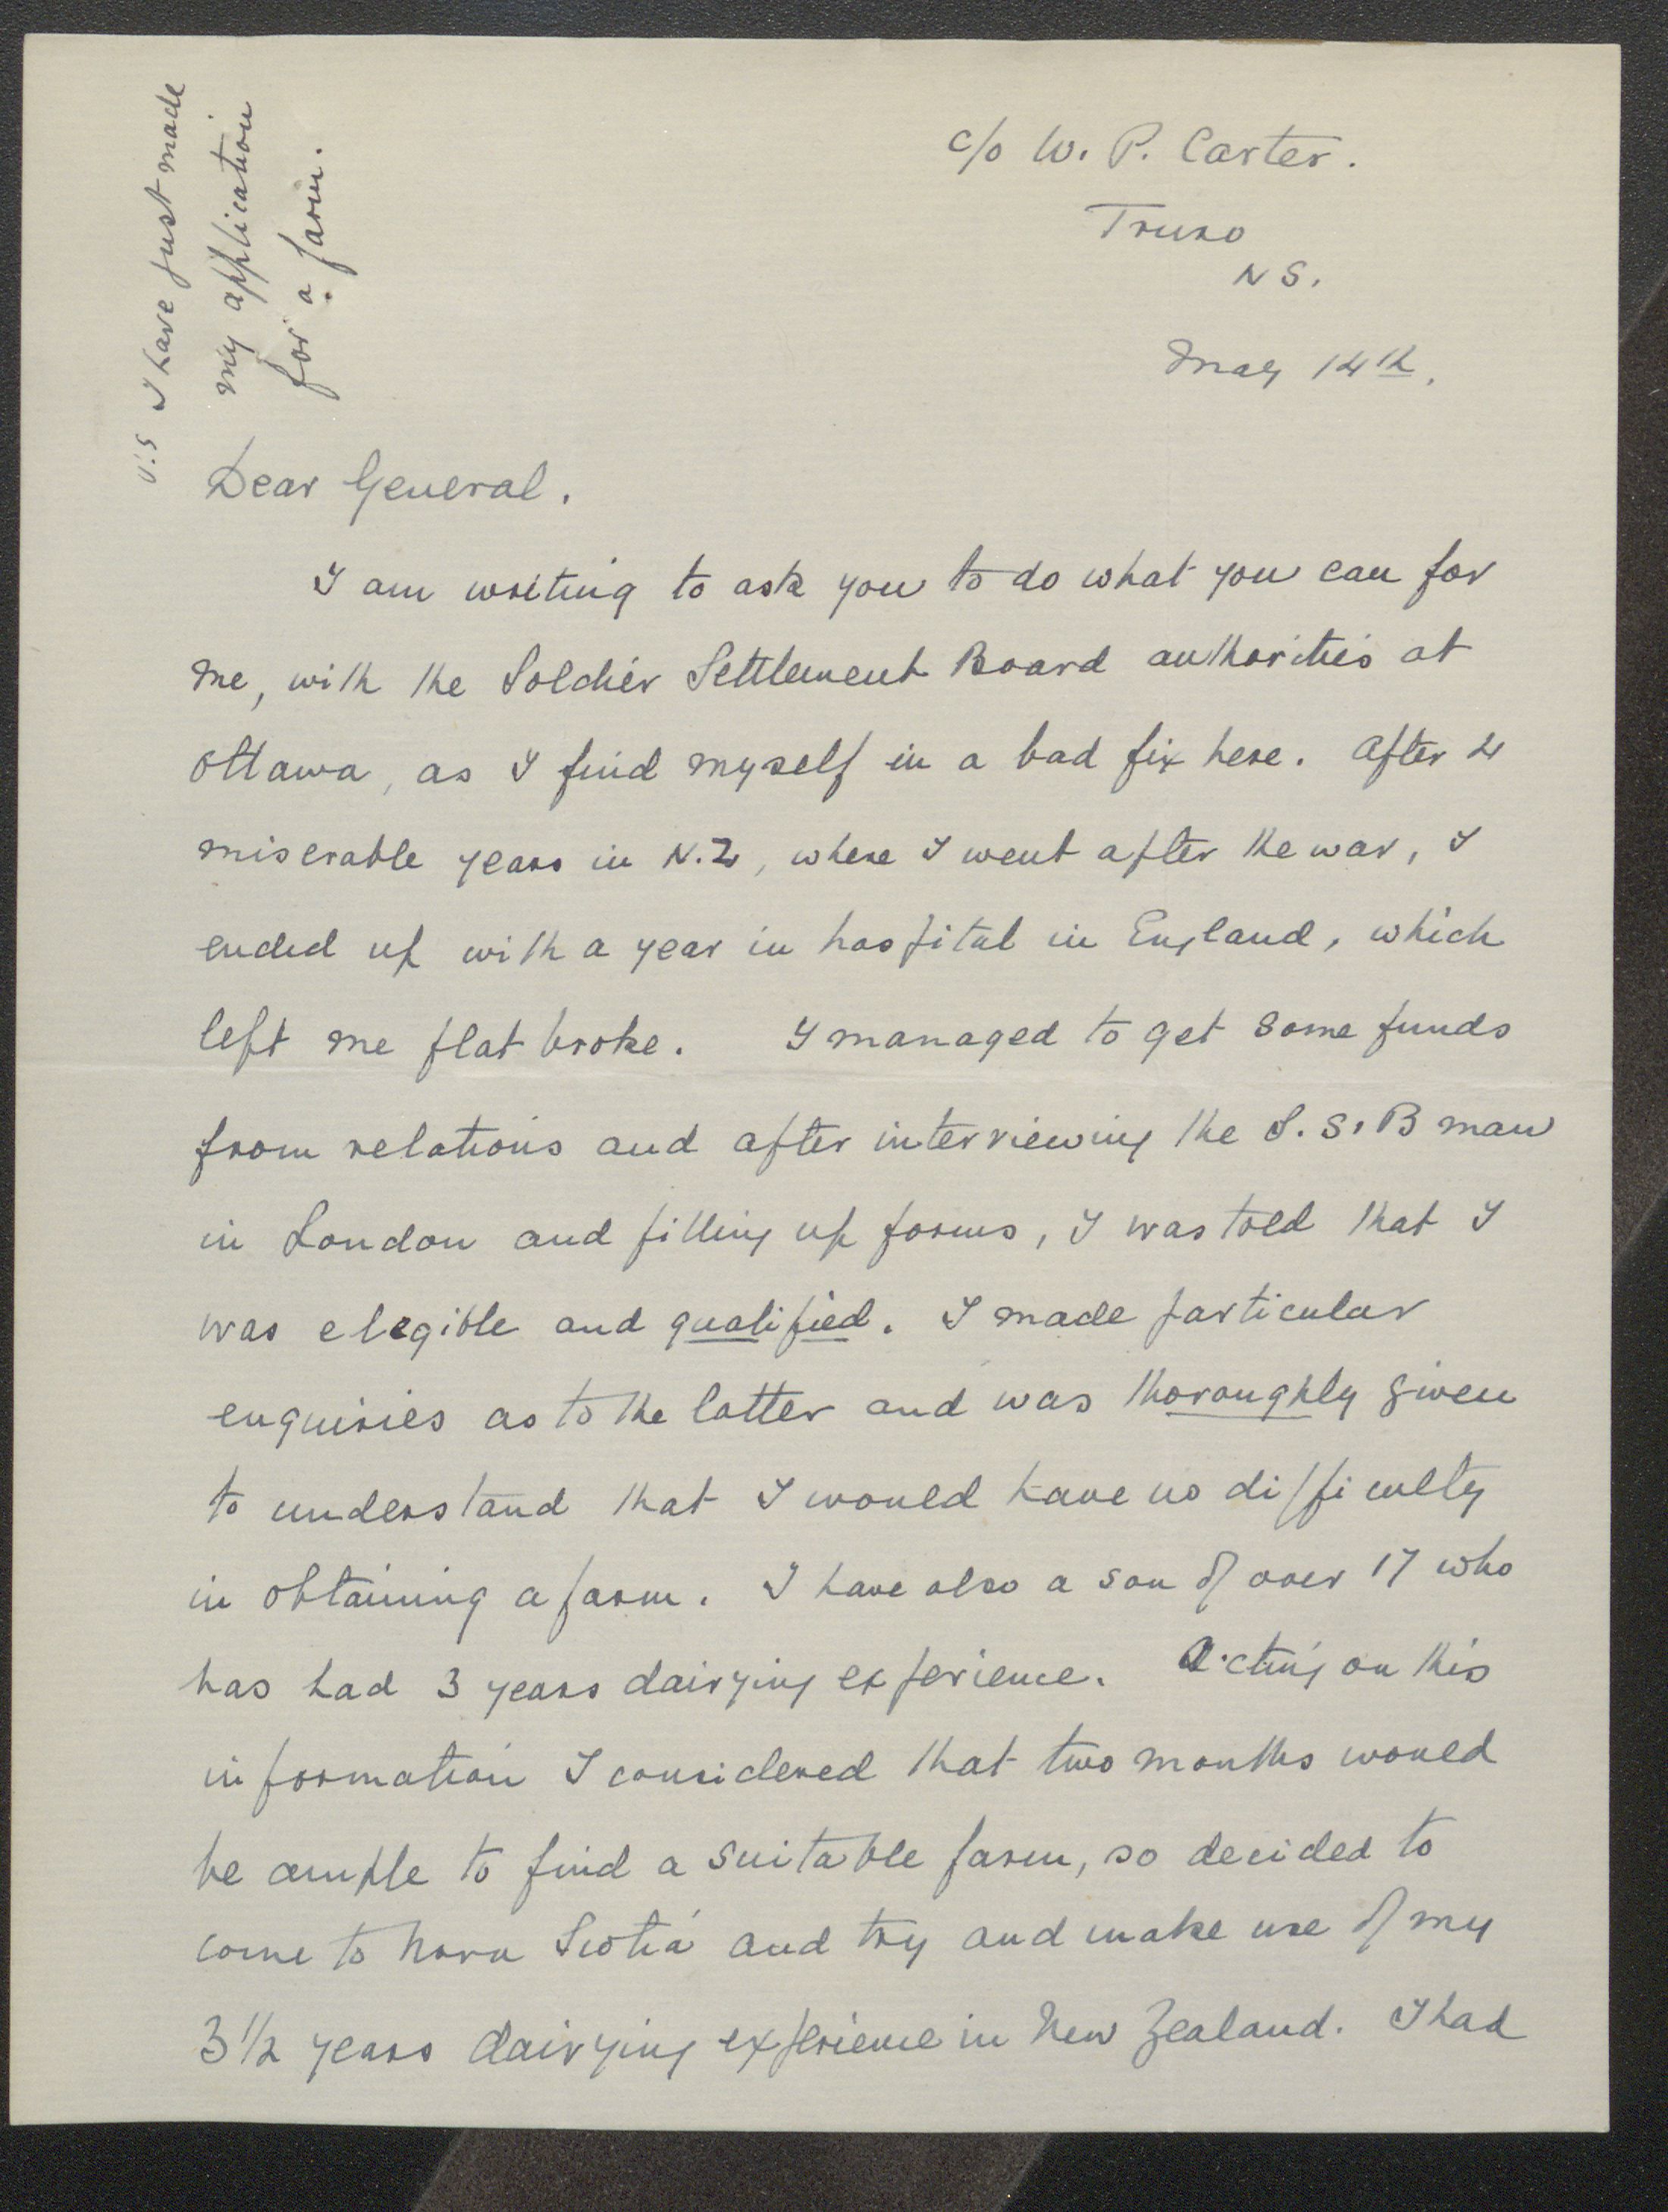 c/o W. P. Carter.
Truro
N S.
May 14th.
I have just made
my application
for a farm.
Dear General.
I am writing to ask you to do what you can for
me, with the Soldier Settlement Board authorities at
Ottawa, as I find myself in a bad fix here. After 4
miserable years in N.Z, where I went after the war, I
ended up with a year in hospital in England, which
left me flat broke. I managed to get some funds
from relations and after interviewing the S.S.B man
in London and filling up forms, I was told that I
was elegible and qualified. I made particular
enquiries as to the latter and was thoroughly given
to understand that I would have no difficulty
in obtaining a farm. I have also a son of over 17 who
has had 3 years dairying experience. Acting on this
information I considered that two months would
be ample to find a suitable farm, so decided to
come to Nova Scotia and try and make use of my
3 1/2 years dairying experience in New Zealand. I had